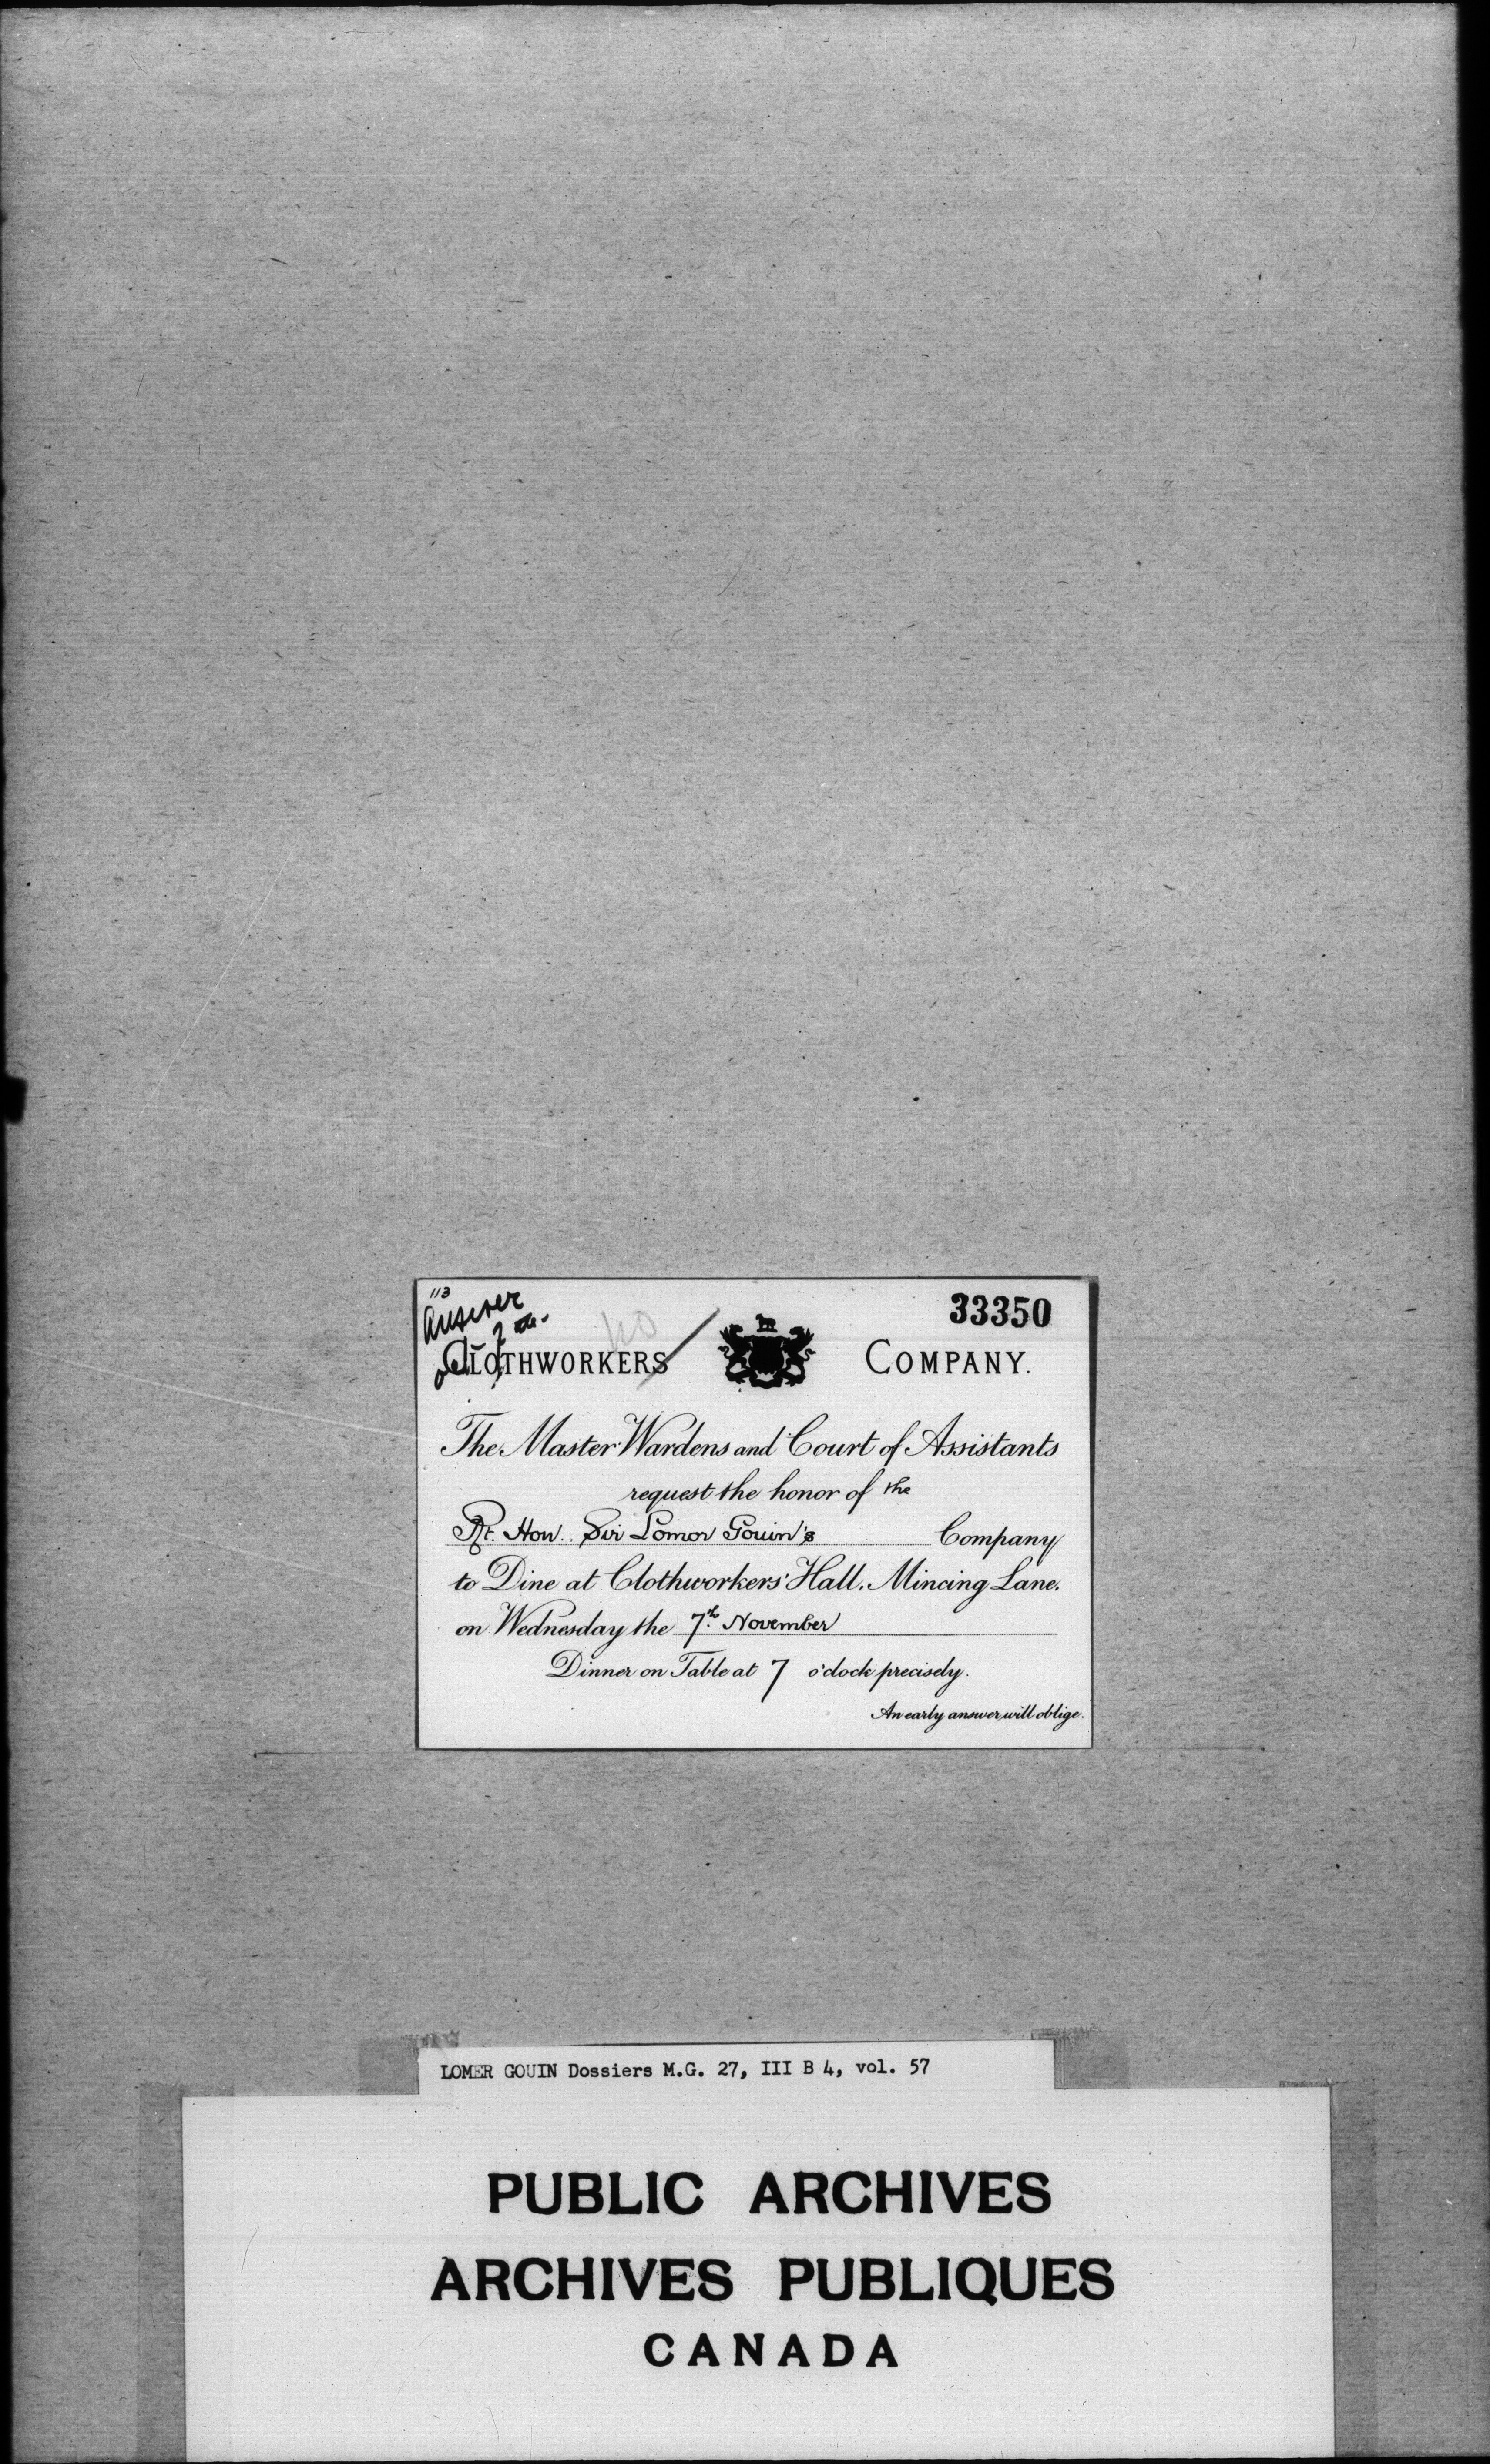 113
answer
33350
no
CLOTHWORKERS COMPANY.
The Master Wardens and Court of Assistants
request the honor of the
Rt. Hon. Sir Lomor Gouin's Company
to Dine at Clothworkers' Hall, Mincing Lane,
on Wednesday the 7th November
Dinner on Table at 7 o'clock precisely.
An early answer will oblige.
LOMER GOUIN Dossiers M.G. 27, III B 4, vol. 57
PUBLIC ARCHIVES
ARCHIVES PUBLIQUES
CANADA